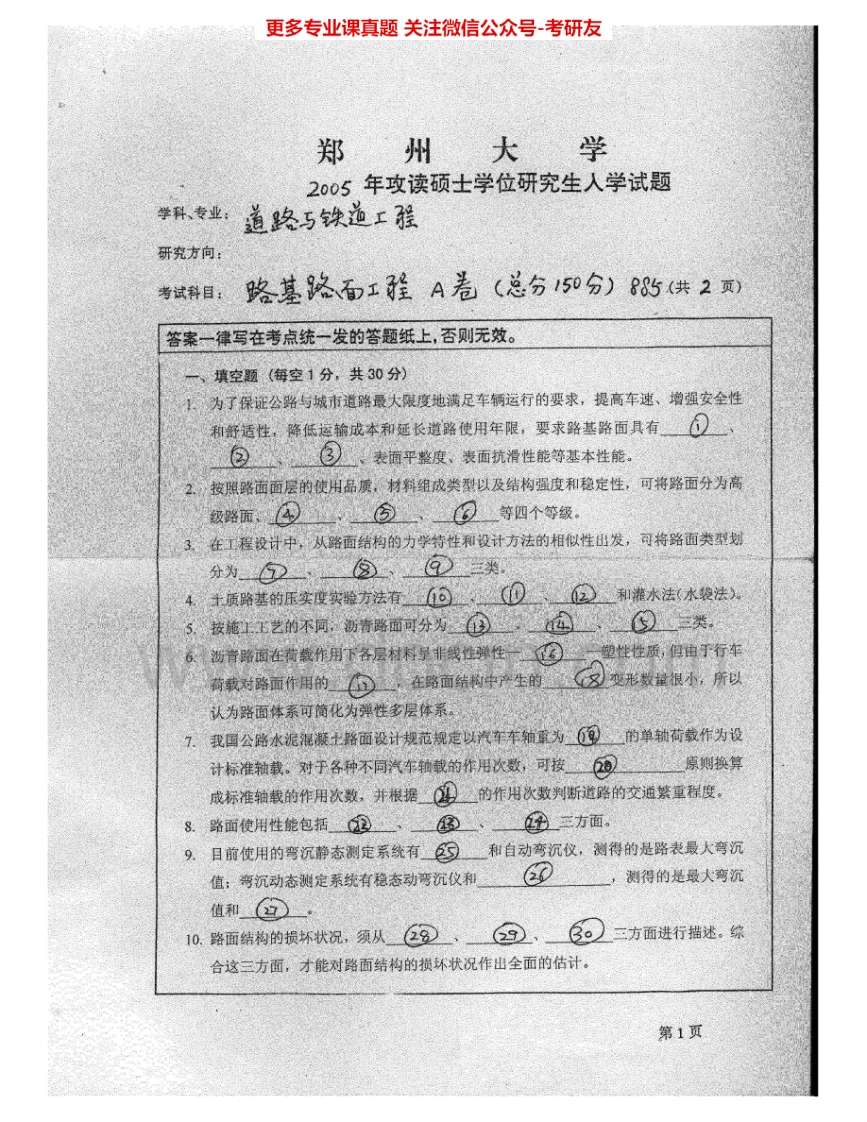 更多专业课真题 关注微信公众号-考研友
郑州大学
2005 年攻读硕士学位研究生入学试题
学科、专业：道路与铁道工程
研究方向：
考试科目：路基路面工程 A卷（总分150分）885（共 2 页）
答案一律写在考点统一发的答题纸上，否则无效。
一、填空题（每空 1 分，共 30 分）
1. 为了保证公路与城市道路最大限度地满足车辆运行的要求，提高车速、增强安全性
和舒适性，降低运输成本和延长道路使用年限，要求路基路面具有 ① 、
② 、 ③ 、表面平整度、表面抗滑性能等基本性能。
2. 按照路面面层的使用品质，材料组成类型以及结构强度和稳定性，可将路面分为高
级路面、 ④ 、 ⑤ 、 ⑥ 等四个等级。
3. 在工程设计中，从路面结构的力学特性和设计方法的相似性出发，可将路面类型划
分为 ⑦ 、 ⑧ 、 ⑨ 三类。
4. 土质路基的压实度实验方法有 ⑩ 、 ⑪ 、 ⑫ 和灌水法(水袋法)。
5. 按施工工艺的不同，沥青路面可分为 ⑬ 、 ⑭ 、 ⑮ 三类。
6. 沥青路面在荷载作用下各层材料呈非线性弹性— ⑯ —塑性性质，但由于行车
荷载对路面作用的 ⑰ ，在路面结构中产生的 ⑱ 变形数量很小，所以
认为路面体系可简化为弹性多层体系。
7. 我国公路水泥混凝土路面设计规范规定以汽车车轴重为 ⑲ 的单轴荷载作为设
计标准轴载。对于各种不同汽车轴载的作用次数，可按 ⑳ 原则换算
成标准轴载的作用次数，并根据 ㉑ 的作用次数判断道路的交通繁重程度。
8. 路面使用性能包括 ㉒ 、 ㉓ 、 ㉔ 三方面。
9. 目前使用的弯沉静态测定系统有 ㉕ 和自动弯沉仪，测得的是路表最大弯沉
值；弯沉动态测定系统有稳态动弯沉仪和 ㉖ ，测得的是最大弯沉
值和 ㉗ 。
10. 路面结构的损坏状况，须从 ㉘ 、 ㉙ 、 ㉚ 三方面进行描述。综
合这三方面，才能对路面结构的损坏状况作出全面的估计。
第 1 页